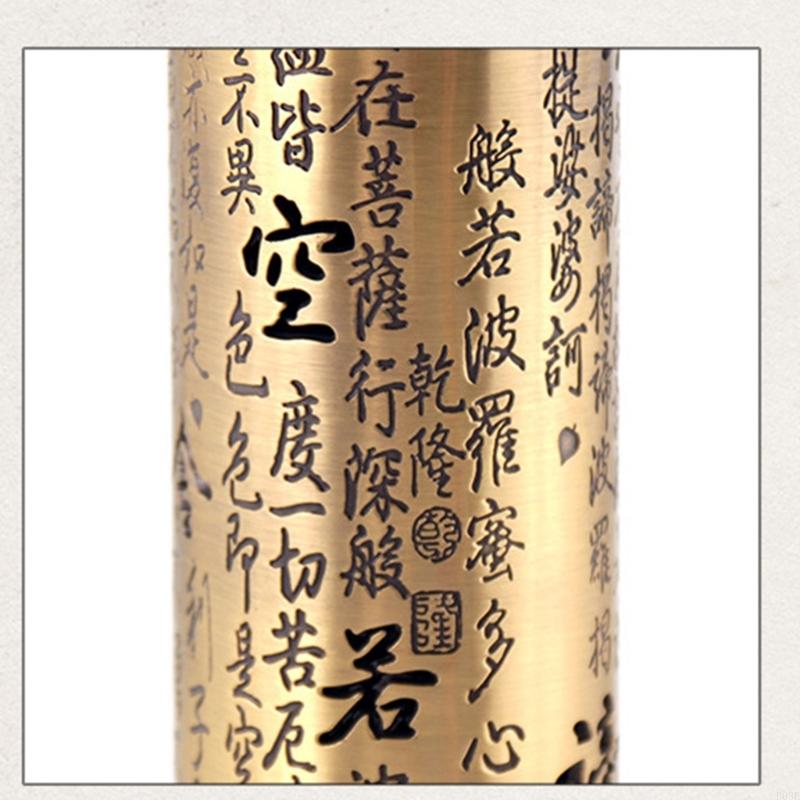 揭諦揭諦波羅揭
提娑婆訶
般若波羅蜜多心
乾隆
乾
隆
在菩薩行深般若
皆空度一切苦厄
不異色色即是空
復如是舍利子